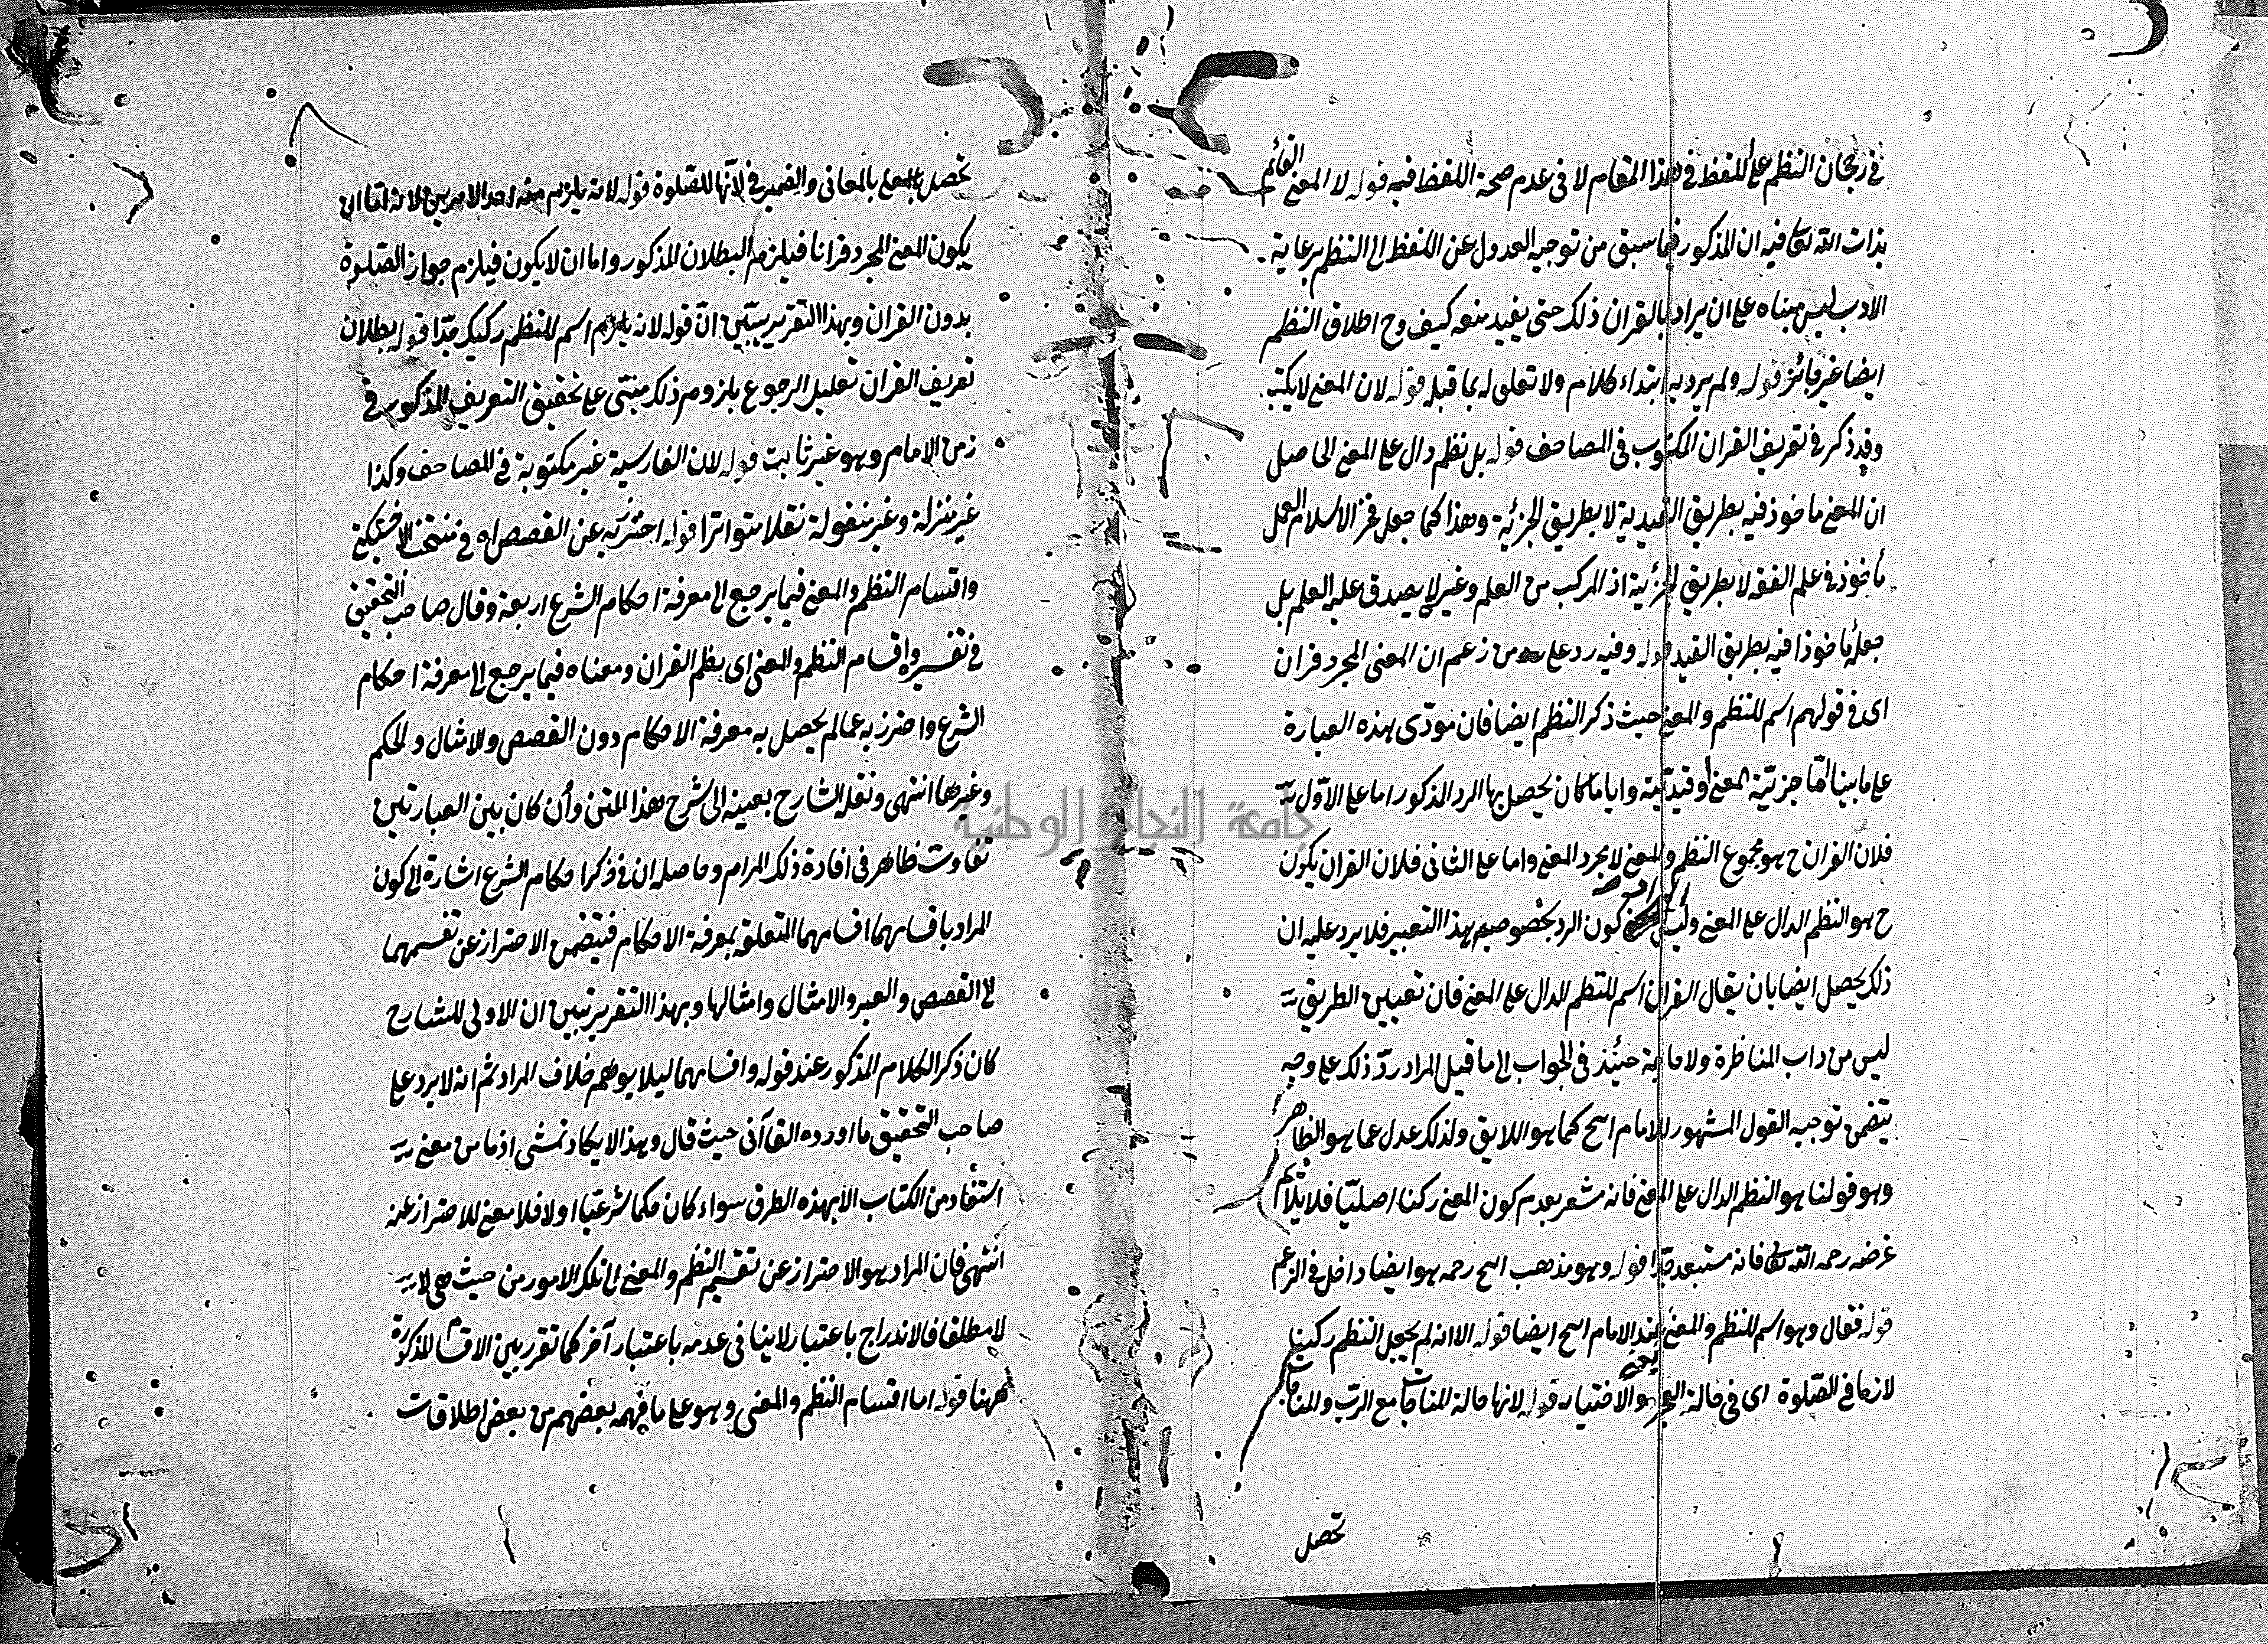 في رجحان النظم على اللفظ في هذا المقام لا في عدم صحة اللفظ فيه قوله لا المعنى القائم
بذات الله تعالى فيه ان المذكور فيما سبق من توجيه العدول عن اللفظ الى النظم برعاية
الادب ليس مبناه على ان يراد بالقران ذلك حتى يفيد منعه كيف وح اطلاق النظم
ايضا غير جائز قوله ولم يرد به ابتداء كلام ولا تعلق له بما قبله قوله لان المعنى لا يكتب
وقد ذكر في تعريف القران المكتوب في المصاحف قوله بل نظم دال على المعنى الحاصل
ان المعنى ماخوذ فيه بطريق القيدية لا بطريق الجزئية وهذا كما جعل فخر الاسلام العمل
مأخوذ في علم الفقه لا بطريق الجزئية اذ المركب من العلم وغيره لا يصدق عليه العلم بل
جعله ماخوذا فيه بطريق القيد قوله وفيه رد على من زعم ان المعنى المجرد قران
اى في قولهم اسم للنظم والمعنى حيث ذكر النظم ايضا فان مودّى بهذه العبارة
على ما بينا امّا جزئيّة المعنى او قيديّة وايا ما كان يحصل بها الرد المذكور اما على الاوّل
فلان القران ح هو مجموع النظم والمعنى لا مجرد المعنى واما على الثانى فلان القران يكون
ح هو النظم الدال على المعنى وليس كون الرد بخصوصه بهذا التعبير فلا يرد عليه ان
ذلك يحصل ايضا بان يقال القران اسم للنظم الدال على المعنى فان تعيين الطريق
ليس من داب المناظرة ولا حاجة حينئذ في الجواب الى ما قيل المراد ردّ ذلك على وجه
يتضمن توجيه القول المشهور للامام اسح كما هو اللايق ولذلك عدل عما هو الظاهر
وهو قولنا هو النظم الدال على المعنى فانه مشعر بعدم كون المعنى ركنا اصليّا فلا يلائم
غرضه رحمه الله تعالى فانه مستبعد جدّا قوله وهو مذهب اسح رحمه هو ايضا داخل في الزعم
قوله فقال وهو اسم للنظم والمعنى عند الامام اسح ايضا قوله الا انه لم يجعل النظم ركينا
لازما في الصّلوة اى في حالة العجز والاختيار قوله لانها حالة المناجات مع الربّ والمناجات
تحصل
تحصل بالمعانى والضمير في لانها للصّلوة قوله لانه يلزم منه احد الامرين لانه اما ان
يكون المعنى المجرد قرانا فيلزم البطلان المذكور واما ان لا يكون فيلزم جواز الصّلوة
بدون القران وبهذا التقرير يتبيّن انّ قوله لانه يلزم اسم للنظم ركيك جدّا قوله بطلان
تعريف القران تعليل الرجوع بلزوم ذلك مبتنى على تحقيق التعريف المذكور في
زمن الامام وهو غير ثابت قوله لان الفارسية غير مكتوبة في المصاحف وكذا
غير منزلة وغير منقولة نقلا متواترا قوله احترز به عن القصص اه في منتخب الاخسيكتى
واقسام النظم والمعنى فيما يرجع الى معرفة احكام الشرع اربعة وقال صاحب التحقيق
في تفسيره واقسام النظم والمعنى اى نظم القران ومعناه فيما يرجع الى معرفة احكام
الشرع واحترز به عما لم يحصل به معرفة الاحكام دون القصص والامثال والحكم
وغيرها انتهى ونقله الشارح بعينه الى شرح هذا المتن وأن كان بين العبارتين
تفاوت ظاهر في افادة ذلك المرام وحاصله ان في ذكر احكام الشرع اشارة الى كون
المراد باقسامهما اقسامهما المتعلق بمعرفة الاحكام فيتضمن الاحتراز عن تقسيمهما
الى القصص والعبر والامثال وامثالها وبهذا التقرير تبين ان الاولى للشارح
كان ذكر الكلام المذكور عند قوله واقسامهما ليلا يوهم خلاف المراد ثم انه لا يرد على
صاحب التحقيق ما اورده القاآنى حيث قال وهذا لا يكاد تمشى اذ ما من معنى
استفاد من الكتاب الا بهذه الطرق سواء كان حكما شرعيّا او لا فلا معنى للاحتراز عنه
انتهى فان المراد هو الاحتراز عن تقسيم النظم والمعنى الى تلك الامور من حيث هى
لا مطلقا فالاندراج باعتبار لا ينافى عدمه باعتبار آخر كما تقرر بين الاقسام المذكورة
ههنا قوله اما اقسام النظم والمعنى وهو على ما فهمه بعضهم من بعض اطلاقات
جامعة النجاح الوطنية